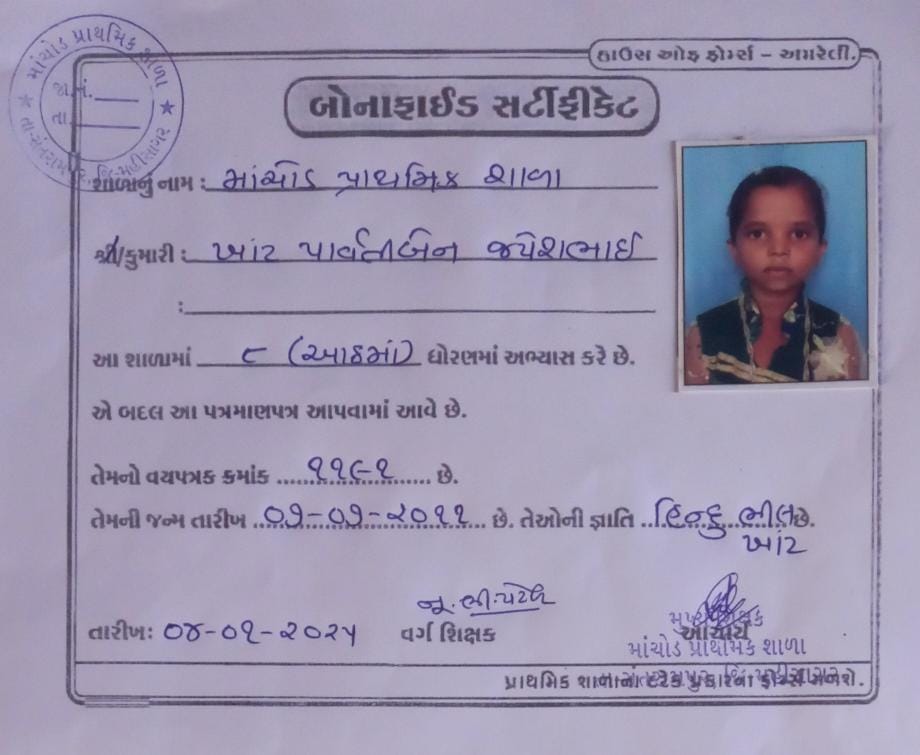 માંચોડ પ્રાથમિક શાળા
જા.નં.
તા.
હાઉસ ઓફ ફોર્મ્સ - અમરેલી.
બોનાફાઈડ સર્ટીફીકેટ
શાળાનું નામ : માંચોડ પ્રાથમિક શાળા
શ્રી/કુમારી : ખાંટ પાર્વતીબેન જયેશભાઈ
:
આ શાળામાં ૮ (આઠમાં) ધોરણમાં અભ્યાસ કરે છે.
એ બદલ આ પત્રમાણપત્ર આપવામાં આવે છે.
તેમનો વયપત્રક ક્રમાંક ૧૧૯૧ છે.
તેમની જન્મ તારીખ ૦૭-૦૭-૨૦૧૧ છે. તેઓની જ્ઞાતિ હિન્દુ ભીલ છે.
ખાંટ
તારીખ: ૦૪-૦૧-૨૦૨૫ વર્ગ શિક્ષક આચાર્ય
મુખ્ય શિક્ષક
માંચોડ પ્રાથમિક શાળા
પ્રાથમિક શાળાના દરેક પ્રકારના ફોર્મ્સ મળશે.